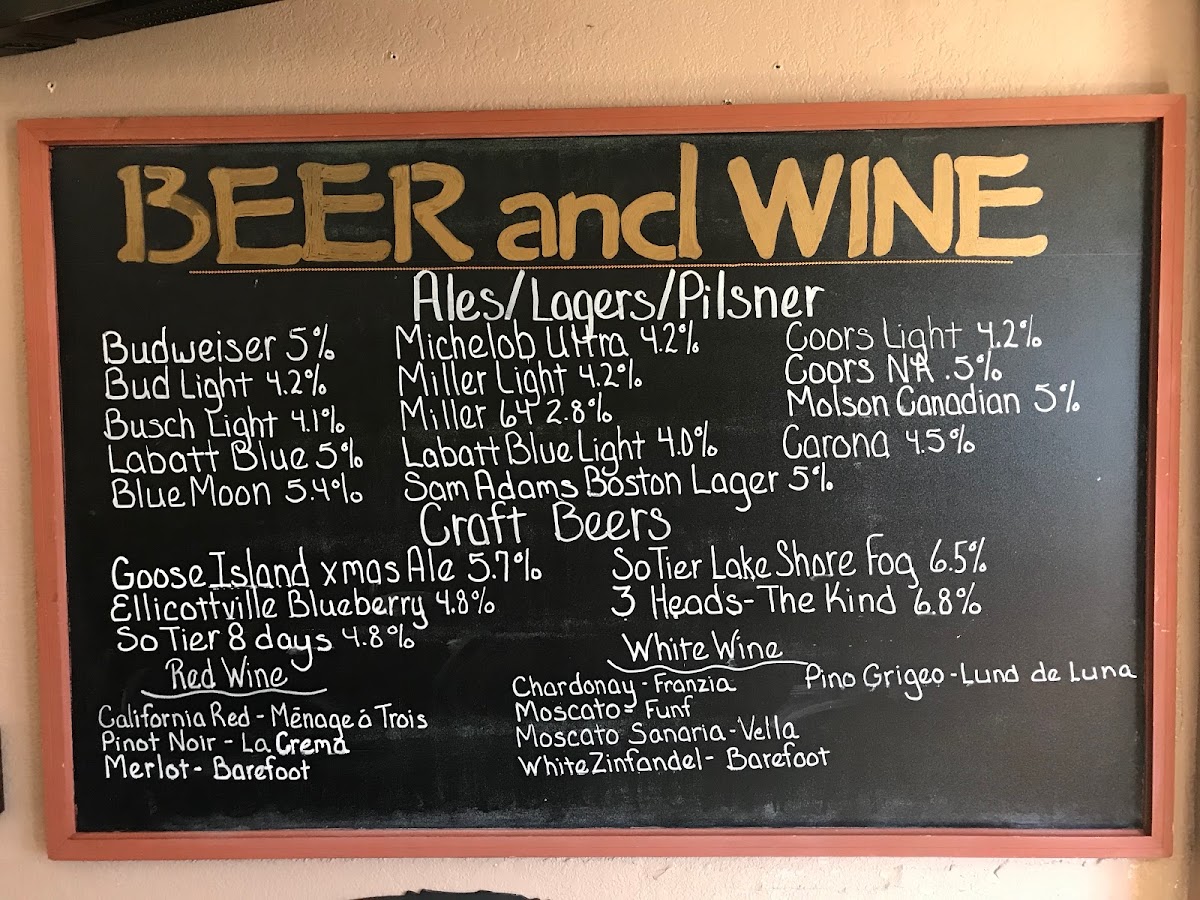 BEER and WINE
Ales/Lagers/Pilsner
Budweiser 5%
Bud Light 4.2%
Busch Light 4.1%
Labatt Blue 5%
Blue Moon 5.4%
Michelob Ultra 4.2%
Miller Light 4.2%
Miller 64 2.8%
Labatt Blue Light 4.0%
Sam Adams Boston Lager 5%
Coors Light 4.2%
Coors NA .5%
Molson Canadian 5%
Carona 4.5%
Craft Beers
Goose Island xmas Ale 5.7%
Ellicottville Blueberry 4.8%
So Tier 8 days 4.8%
So Tier Lake Shore Fog 6.5%
3 Heads-The Kind 6.8%
Red Wine
California Red - Ménage á Trois
Pinot Noir - La Crema
Merlot - Barefoot
White Wine
Chardonay - Franzia
Moscato - Funf
Moscato Sanaria - Vella
White Zinfandel - Barefoot
Pino Grigeo - Luna de Luna